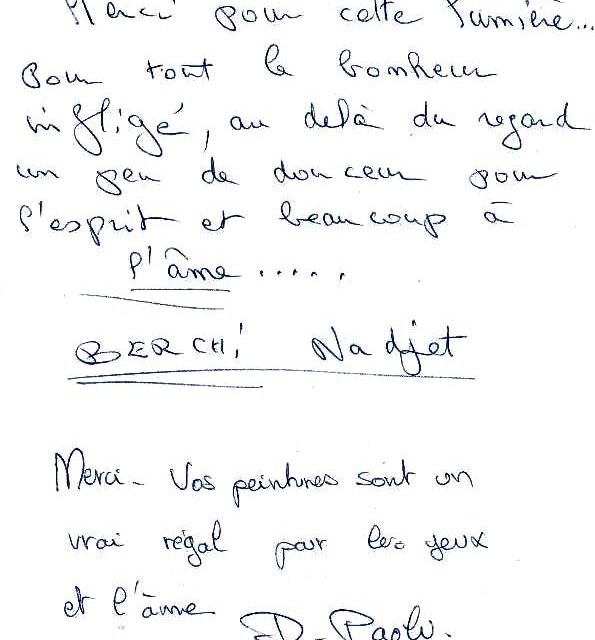 Merci pour cette lumière...
Pour tout le bonheur
infligé, au delà du regard
un peu de douceur pour
l'esprit et beaucoup à
l'âme .....
BERCHI Nadjet
Merci - Vos peintures sont un
vrai régal par les yeux
et l'âme
D. Paoli.